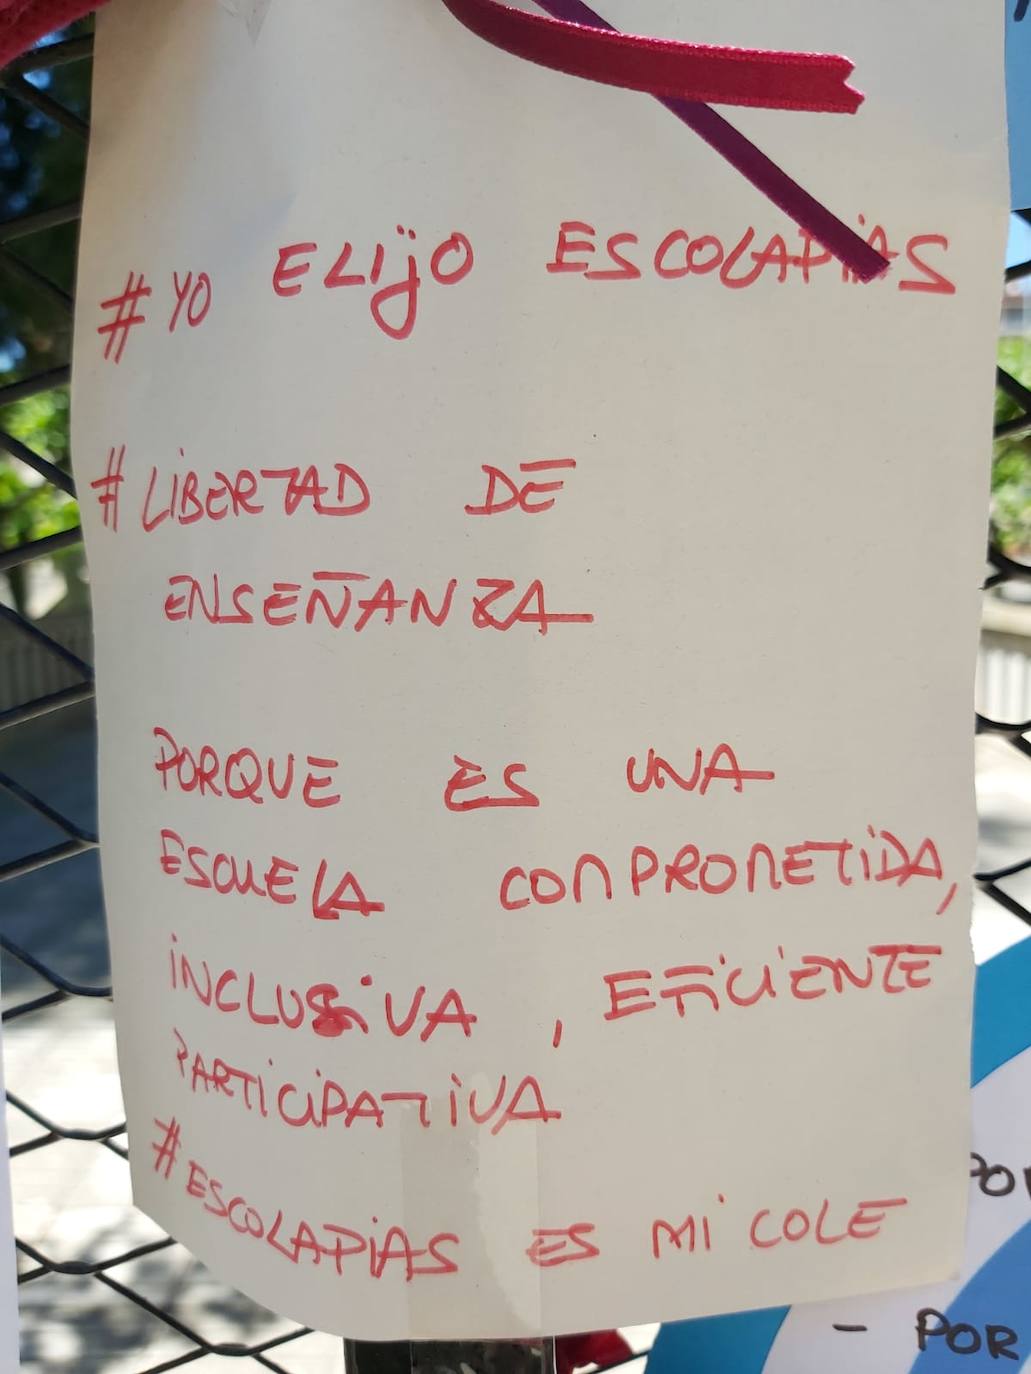 #YO ELIJO ESCOLAPIAS
#LIBERTAD DE
ENSEÑANZA
PORQUE ES UNA
ESCUELA COMPROMETIDA,
INCLUSIVA, EFICIENTE
PARTICIPATIVA
#ESCOLAPIAS ES MI COLE
- POR